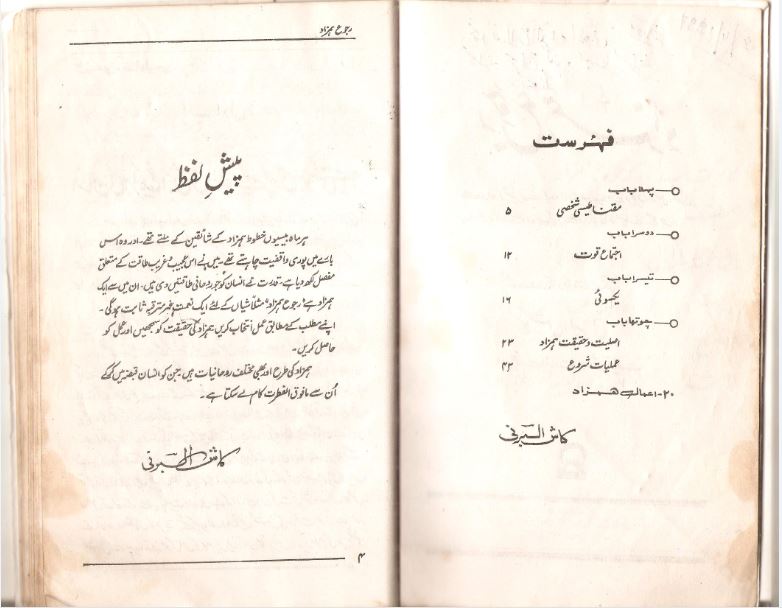 فہرست
پہلا باب
مقناطیسی شخصی ۵
دوسرا باب
اجتماع قوت ۱۲
تیسرا باب
یکسوئی ۱۶
چوتھا باب
اصلیت و حقیقت ہمزاد ۲۳
عملیات شروع ۴۳
۲۰- اعمالِ ہمزاد
کاش البرنی
رجوع ہمزاد
پیشِ لفظ
ہر ماہ بیسیوں خطوط ہمزاد کے شائقین کے ملتے تھے۔ اور وہ اس
بارے میں پوری واقفیت چاہتے تھے۔ میں نے اس عجیب و غریب طاقت کے متعلق
مفصل لکھ دیا ہے۔ قدرت نے انسان کو جو روحانی طاقتیں دی ہیں۔ ان میں سے ایک
ہمزاد ہے "رجوع ہمزاد" متلاشیاں کے لئے ایک نعمت غیر مترقبہ ثابت ہوگی۔
اپنے مطلب کے مطابق عمل انتخاب کریں ہمزاد کی حقیقت کو سمجھیں اور عمل کو
حاصل کریں۔
ہمزاد کی طرح اور بھی مختلف روحانیات ہیں۔ جن کو انسان قبضہ میں کرکے
اُن سے مافوق الفطرت کام لے سکتا ہے۔
کاش البرنی
۴